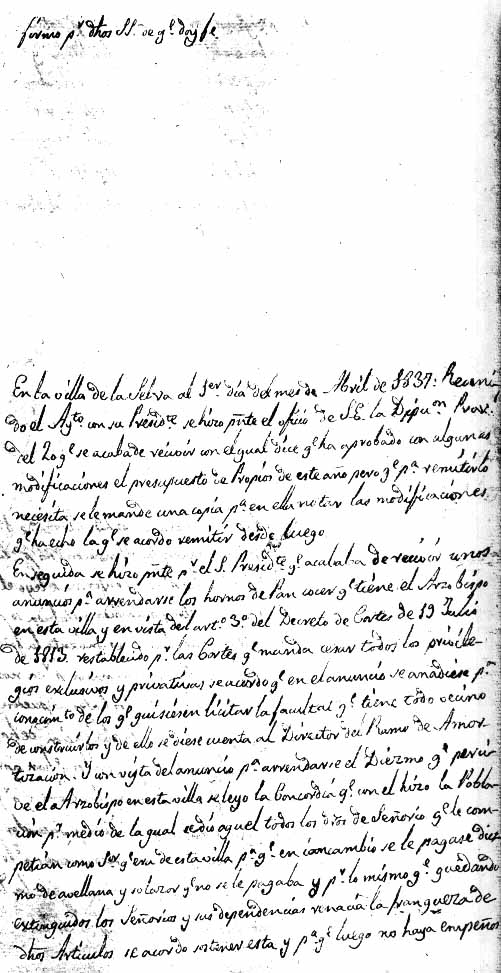 firmo pr. dhos SS. de qe. doy fe.
En la villa de la Selva al 1er. dia del mes de Abril de 1837: Reuni
do el Ayto. con su Presidte. se hizo pnte el oficio de S.E. la Dipuon. Prov.
del 20 qe. se acaba de recivir con el qual dice qe. ha aprobado con algunas
modificaciones el presupuesto de Propios de este año pero qe. pa. remitirlo
necesita se le mande una copia pa. en ella notar las modificaciones
qe. ha echo la qe. se acordo remitir desde luego
En seguida se hizo pnte pr. el S. Presidte. qe. acababa de recivir unos
anuncios pa. arrendarse los hornos de Pan cocer qe. tiene el Arzobispo
en esta villa y en vista del arto. 3o. del Decreto de Cortes de 19 Julio
de 1813. restablecido pr. las Cortes qe. manda cesar todos los privile-
gios exclusivos y privativos se acordo qe. en el anuncio se añadiese pa.
conocimto de los qe. quisiesen licitar la facultad qe. tiene todo vecino
de construirlos y de ello se diese cuenta al Director del Ramo de Amor
tizacion. Y con vista del anuncio pa. arrendarse el Diezmo qe. perci-
ve el Arzobispo en esta villa se leyo la Concordia qe. con el hizo la Pobla-
cion pr. medio de la qual cedio aquel todos los dros de Señorio qe. le com-
petian como Sor. qe. era de esta villa pa. qe. en cancambio se le pagase diez
mo de avellana y qe. no se le pagaba y pr. lo mismo qe. quedando
extinguidos los Señorios y sus dependencias renacia la franqueza de
dhos Articulos se acordo sostener esta y pa. qe. luego no haya empeños